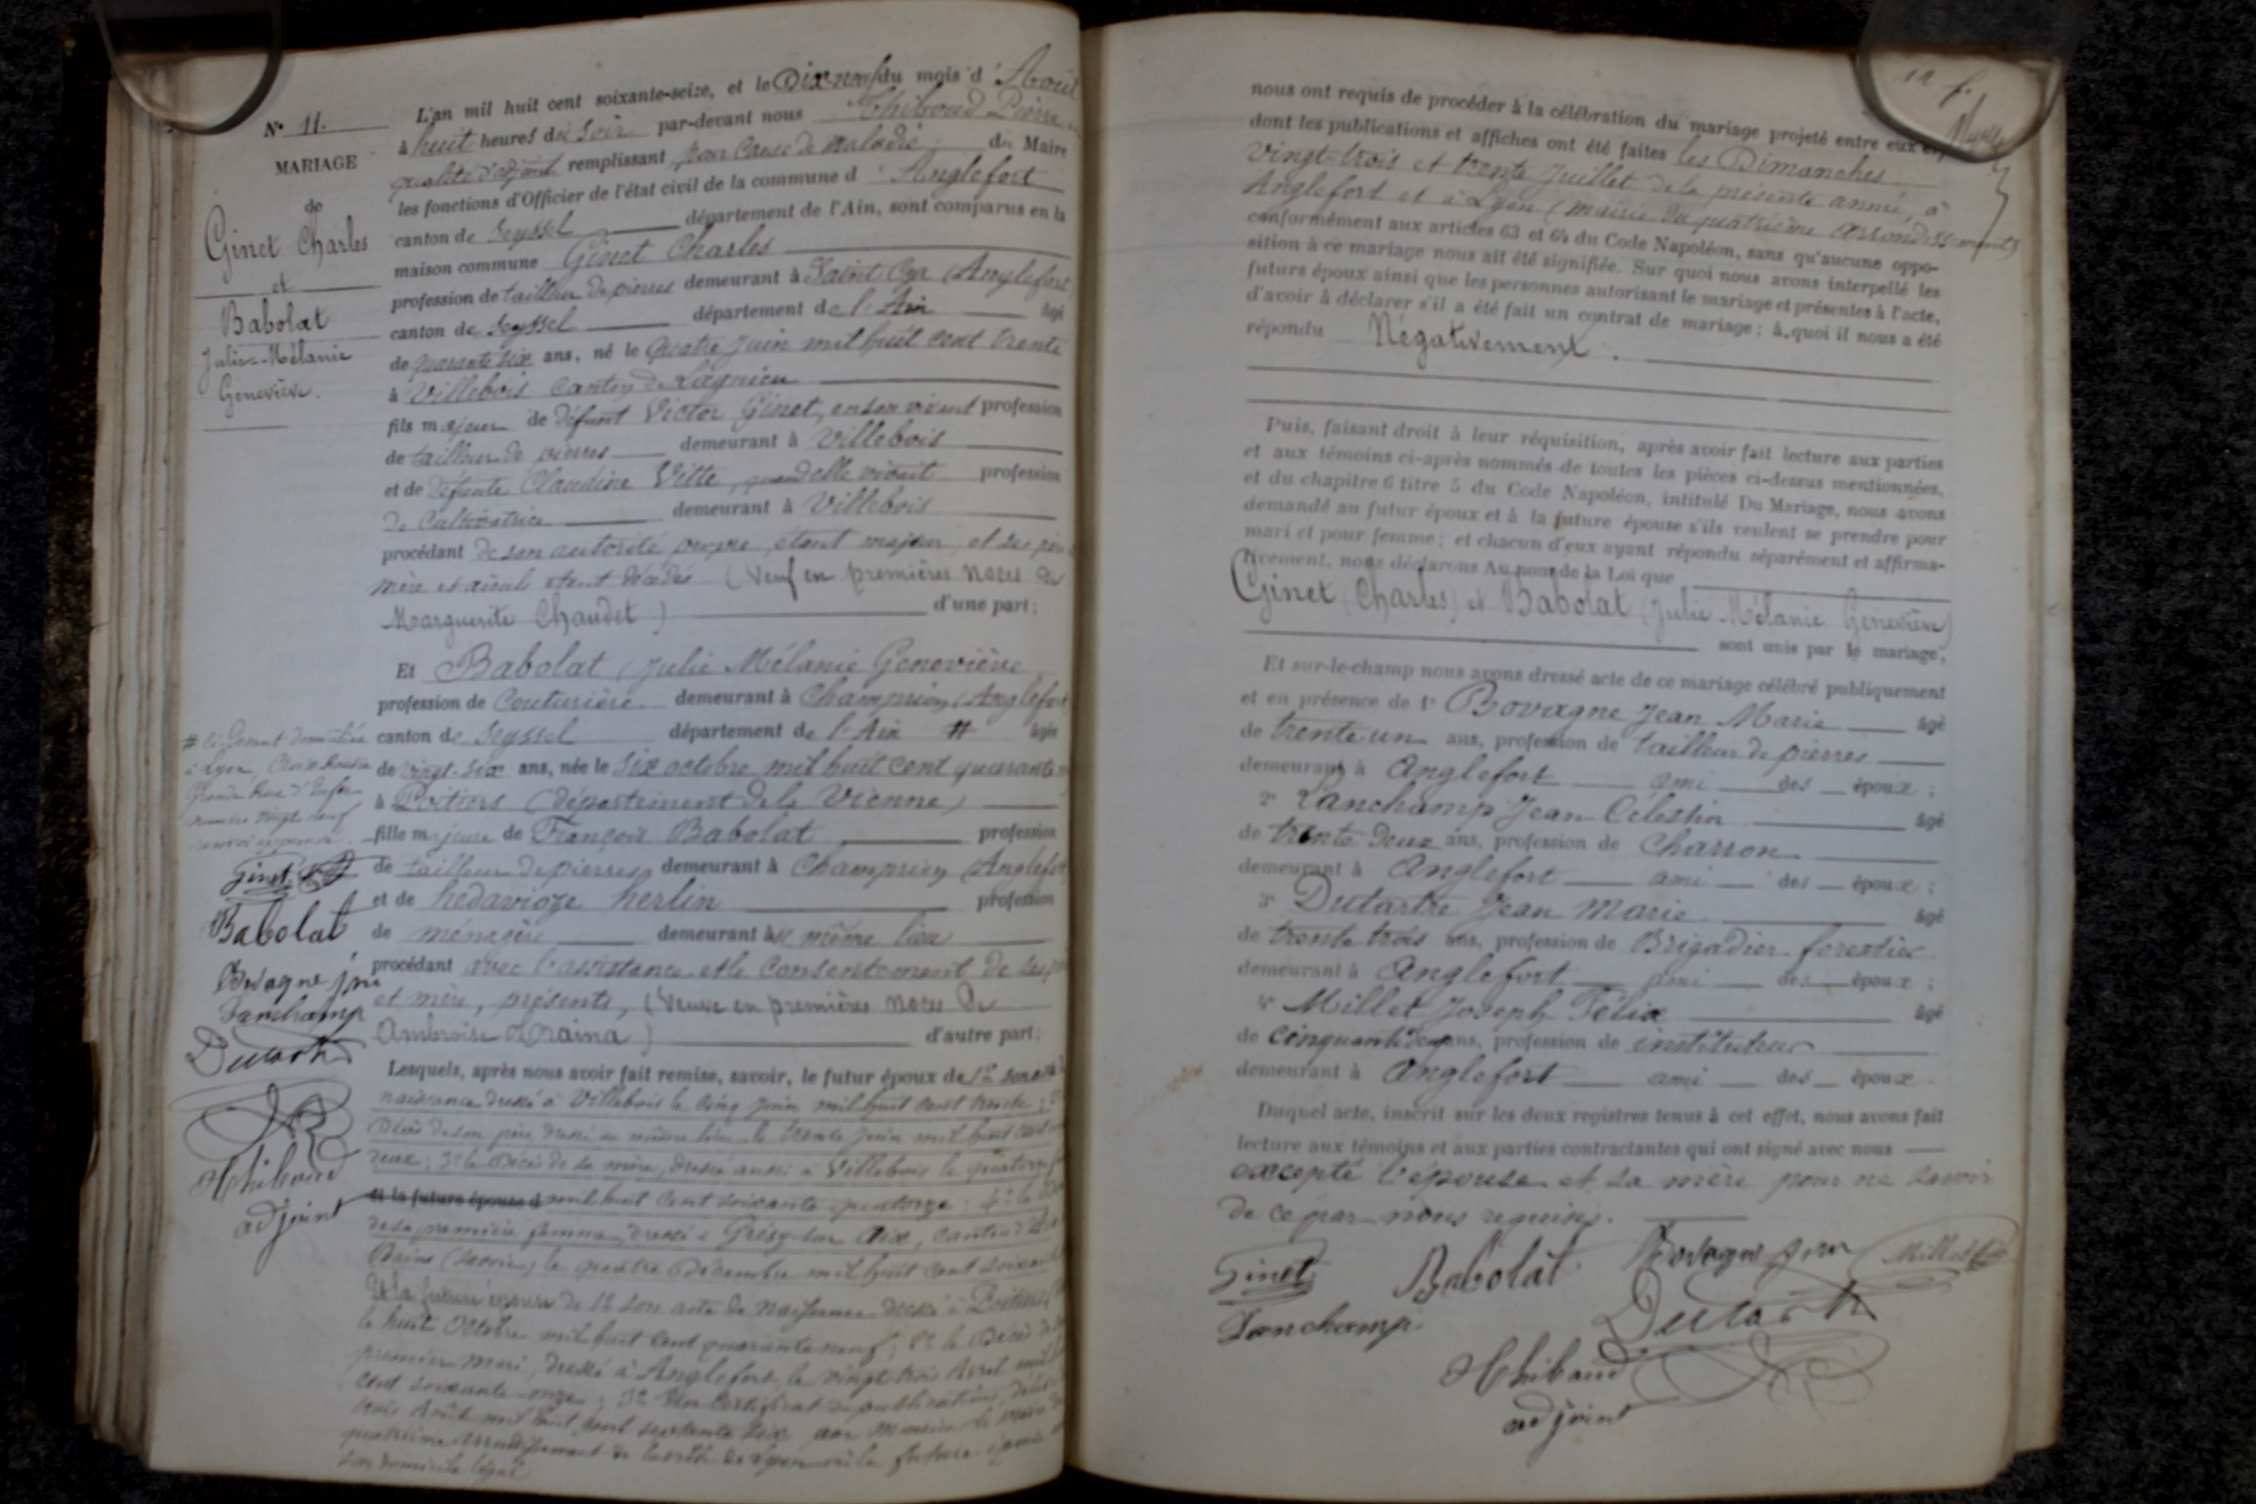 N° 11.
MARIAGE
de
Ginet Charles
et
Babolat
Julie-Mélanie
Geneviève.
L'an mil huit cent soixante-seize, et le Dix neuf du mois d'Août
à huit heures du soir par-devant nous Thiboud Pierre
qualité d'adjoint remplissant pour cause de maladie du Maire
les fonctions d'Officier de l'état civil de la commune d'Anglefort
canton de Seyssel département de l'Ain, sont comparus en la
maison commune Ginet Charles
profession de tailleur de pierres demeurant à Saint Cyr (Anglefort
canton de Seyssel département de l'Ain âgé
de quarante six ans, né le quatre juin mil huit cent trente
à Villebois canton de Lagnieu
fils majeur de défunt Victor Ginet, en son vivant profession
de tailleur de pierres demeurant à Villebois
et de défunte Claudine Vitte, quand elle vivait profession
de Cultivatrice demeurant à Villebois
procédant de son autorité propre, étant majeur, et ses père
mère et aïeuls étant décédés (Veuf en premières noces de
Marguerite Chaudet) d'une part;
Et Babolat (Julie Mélanie Geneviève
profession de Couturière demeurant à Champrion (Anglefort
canton de Seyssel département de l'Ain # âgée
de vingt-six ans, née le six octobre mil huit cent quarante
à Poitiers (département de la Vienne)
fille majeure de François Babolat profession
de tailleur de pierres demeurant à Champrion (Anglefort
et de hedavioze herlin profession
de ménagère demeurant au même lieu
procédant avec l'assistance et le consentement de ses père
et mère, présents, (Veuve en premières noces de
Ambroise Draina) d'autre part;
# ci devant domiciliée
à Lyon, Croix Rousse
Grande Rue
numéro vingt neuf
Ginet
Babolat
Bovagne jean
Lanchamp
Dutartre
Thiboud
adjoint
Lesquels, après nous avoir fait remise, savoir, le futur époux de 1° son acte
naissance dressé à Villebois le cinq juin mil huit cent trente;
Décès de son père dressé au même lieu le trente juin mil huit cent
deux; 3° le Décès de sa mère, dressé aussi à Villebois le quatorze
et la future épouse d mil huit cent soixante quatorze; 4° le
de sa première femme, dressé à Grésy-sur Aix, canton d'Aix
Bains (Savoie) le quatre Décembre mil huit cent soixante
Et la future épouse de 1° son acte de naissance dressé à Poitiers,
le huit Octobre mil huit cent quarante neuf; 2° le Décès de
premier mari, dressé à Anglefort le vingt trois Avril mil
cent soixante-onze; 3° Un certificat de publications
trois Août mil huit cent septante six par Monsieur le maire
quatrième arrondissement de la ville de Lyon où la future épouse
son domicile légal
nous ont requis de procéder à la célébration du mariage projeté entre eux et
dont les publications et affiches ont été faites les Dimanches
vingt-trois et trente Juillet de la présente année, à
Anglefort et à Lyon (mairie du quatrième arrondissement)
conformément aux articles 63 et 64 du Code Napoléon, sans qu'aucune oppo-
sition à ce mariage nous ait été signifiée. Sur quoi nous avons interpellé les
futurs époux ainsi que les personnes autorisant le mariage et présentes à l'acte,
d'avoir à déclarer s'il a été fait un contrat de mariage; à quoi il nous a été
répondu Négativement.
Puis, faisant droit à leur réquisition, après avoir fait lecture aux parties
et aux témoins ci-après nommés de toutes les pièces ci-dessus mentionnées,
et du chapitre 6 titre 5 du Code Napoléon, intitulé Du Mariage, nous avons
demandé au futur époux et à la future épouse s'ils veulent se prendre pour
mari et pour femme; et chacun d'eux ayant répondu séparément et affirma-
tivement, nous déclarons Au nom de la Loi que
Ginet (Charles) et Babolat (Julie Mélanie Geneviève)
sont unis par le mariage;
Et sur-le-champ nous avons dressé acte de ce mariage célébré publiquement
et en présence de 1° Bovagne Jean Marie âgé
de trente un ans, profession de tailleur de pierres
demeurant à Anglefort ami des époux;
2° Lanchamp Jean Célestin âgé
de trente deux ans, profession de Charron
demeurant à Anglefort ami des époux;
3° Dutartre Jean Marie âgé
de trente trois ans, profession de Brigadier forestier
demeurant à Anglefort ami des époux;
4° Millet Joseph Félix âgé
de cinquante deux ans, profession de instituteur
demeurant à Anglefort ami des époux
Duquel acte, inscrit sur les deux registres tenus à cet effet, nous avons fait
lecture aux témoins et aux parties contractantes qui ont signé avec nous
excepté l'épouse et sa mère pour ne savoir
de ce par nous requises.
Ginet Babolat Bovagne jean Millet
Lanchamp Dutartre
Thiboud
adjoint